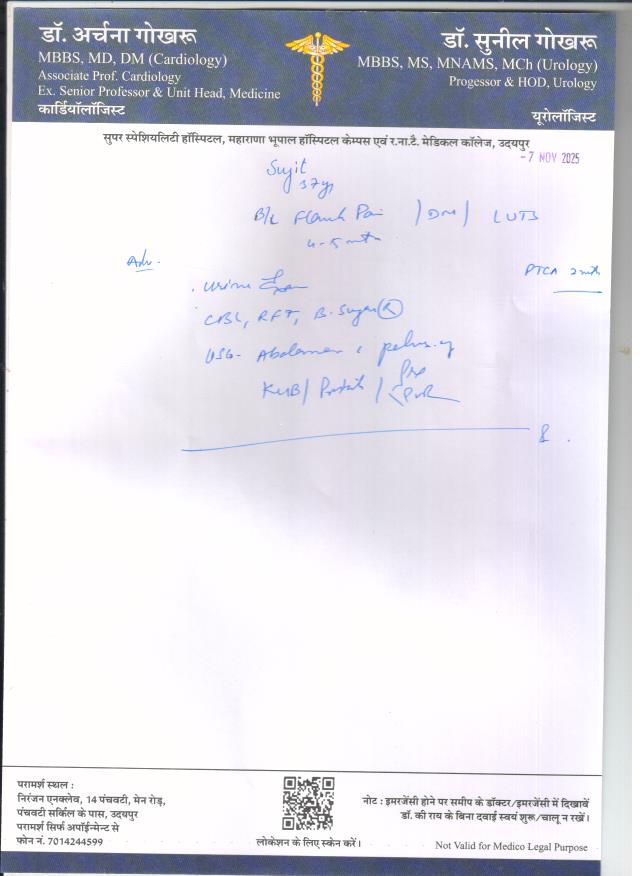 डॉ. अर्चना गोखरू
MBBS, MD, DM (Cardiology)
Associate Prof. Cardiology
Ex. Senior Professor & Unit Head, Medicine
कार्डियॉलॉजिस्ट
डॉ. सुनील गोखरू
MBBS, MS, MNAMS, MCh (Urology)
Progessor & HOD, Urology
यूरोलॉजिस्ट
सुपर स्पेशियलिटी हॉस्पिटल, महाराणा भूपाल हॉस्पिटल केम्पस एवं र.ना.टै. मेडिकल कॉलेज, उदयपुर
- 7 NOV 2025
Sujit
37 yr
B/L Flank Pain / DM / LUTS
4-5 mth
Adv.
PTCA 2 mth
Urine
CBC, RFT, B. Sugar (R)
USG - Abdomen & pelvis
KUB / Prostate / Pre
PVR
परामर्श स्थल :
निरंजन एनक्लेव, 14 पंचवटी, मेन रोड़,
पंचवटी सर्किल के पास, उदयपुर
परामर्श सिर्फ अपॉईन्मेन्ट से
फोन नं. 7014244599
लोकेशन के लिए स्केन करें।
नोट : इमरजेंसी होने पर समीप के डॉक्टर/इमरजेंसी में दिखावें
डॉ. की राय के बिना दवाई स्वयं शुरू/चालू न रखें।
Not Valid for Medico Legal Purpose